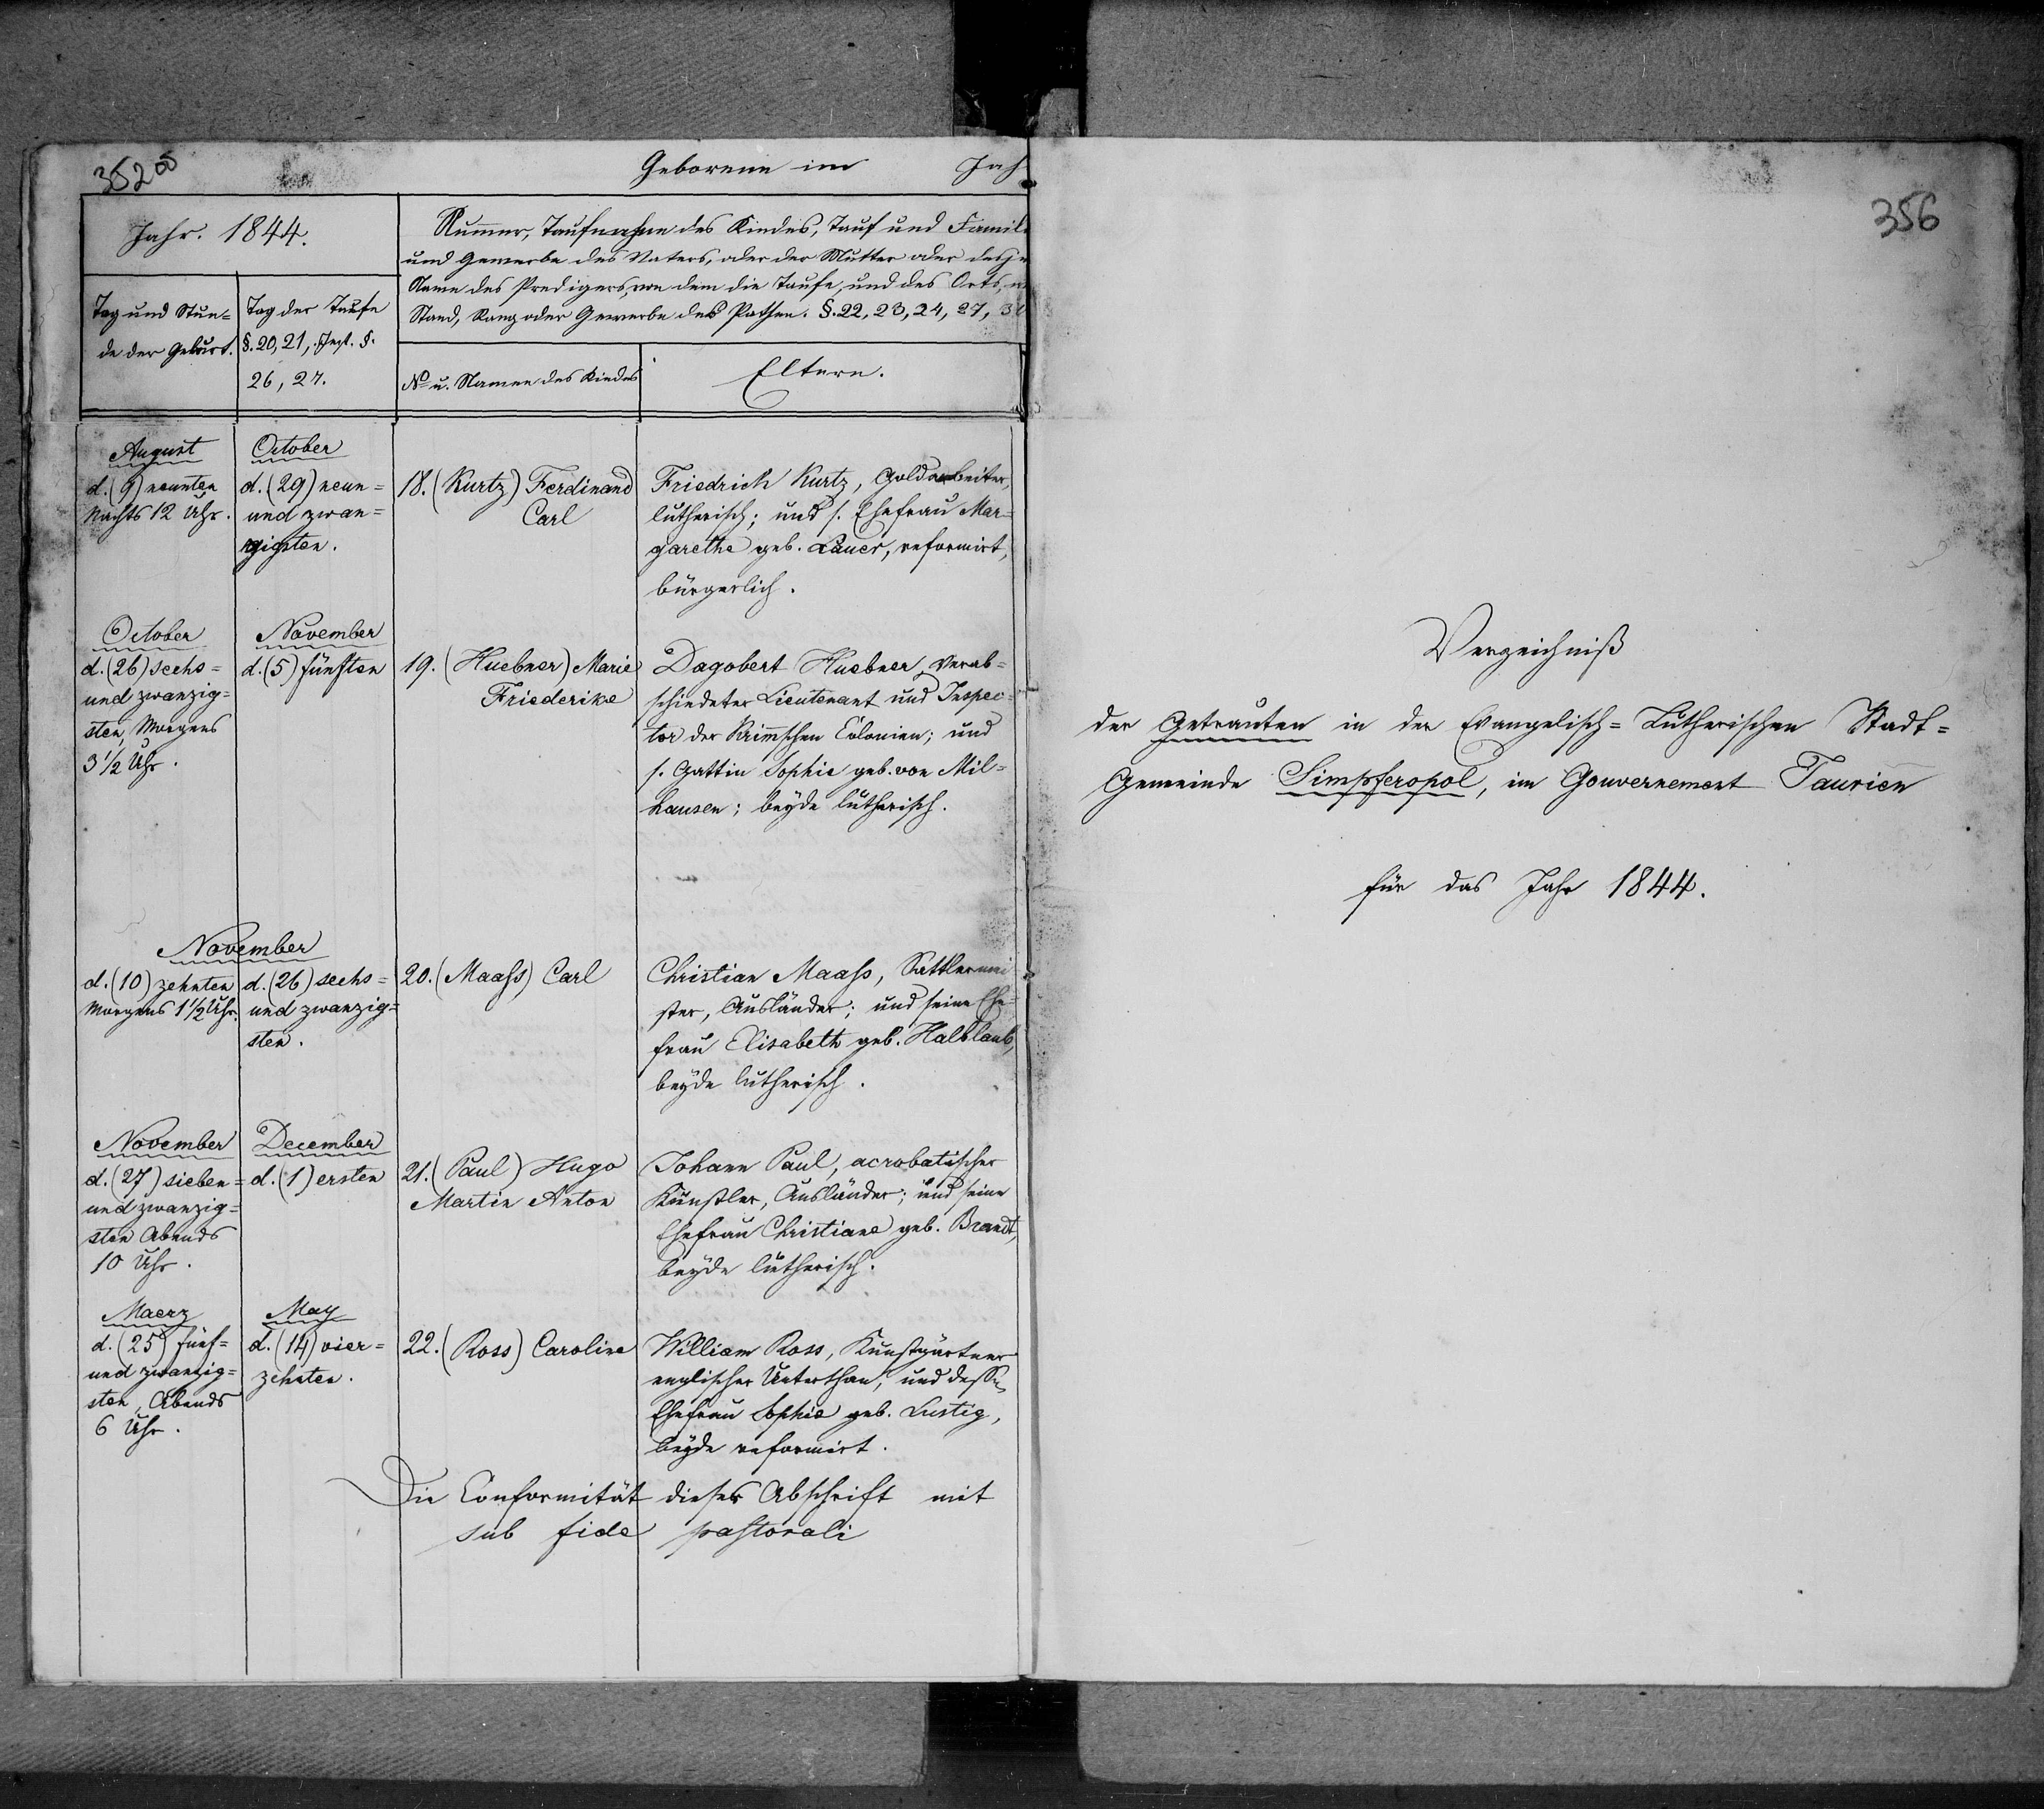 352 об
Geborene im Jah
Jahr. 1844.
Nummer, Taufnahme des Kindes, Tauf und Famili
und Gewerbe des Vaters, oder der Mutter oder desje
Name des Predigers, von dem die Taufe, und des Orts, w
Stand, Rang oder Gewerbe des Pathen. §. 22, 23, 24, 27, 31
Tag und Stun=
de der Geburt.
Tag der Taufe
§. 20, 21, Inst. §.
26, 27.
No u. Namen des Kindes
Eltern.
August
d. (9) neunten
Nachts 12 Uhr.
October
d. (29) neun=
und zwan=
zigsten.
18. (Kurtz) Ferdinand
Carl
Friedrich Kurtz, Goldarbeiter,
lutherisch; und s. Ehefrau Mar=
garethe geb. Lauer, reformirt,
bürgerlich.
October
d. (26) sechs=
und zwanzig=
sten, Morgens
3 1/2 Uhr.
November
d. (5) fünften
19. (Huebner) Marie
Friederike
Dagobert Huebner, verab=
schiedeter Lieutenant und Inspec=
tor der Krimschen Colonien; und
s. Gattin Sophie geb. von Mil=
hausen; beyde lutherisch.
November
d. (10) zehnten
Morgens 1 1/2 Uhr.
d. (26) sechs=
und zwanzig=
sten.
20. (Maass) Carl
Christian Maass, Sattlermei
ster, Ausländer; und seine Ehe=
frau Elisabeth geb. Halblaub,
beyde lutherisch.
November
d. (27) sieben=
und zwanzig=
sten Abends
10 Uhr.
December
d. (1) ersten
21. (Paul) Hugo
Martin Anton
Johann Paul, acrobatischer
Künstler, Ausländer; und seine
Ehefrau Christiane geb. Brandt,
beyde lutherisch.
Maerz
d. (25) fünf=
und zwanzig=
sten, Abends
6 Uhr.
May
d. (14) vier=
zehnten.
22. (Ross) Caroline
William Ross, Kunstgärtner
englischer Unterthan, und dessen
Ehefrau Sophie geb. Lustig,
beyde reformirt.
Die Conformität dieser Abschrift mit
sub fide pastorali
356
Verzeichniß
der Getrauten in der Evangelisch=Lutherischen Stadt=
Gemeinde Simpferopol, im Gouvernement Taurien
für das Jahr 1844.